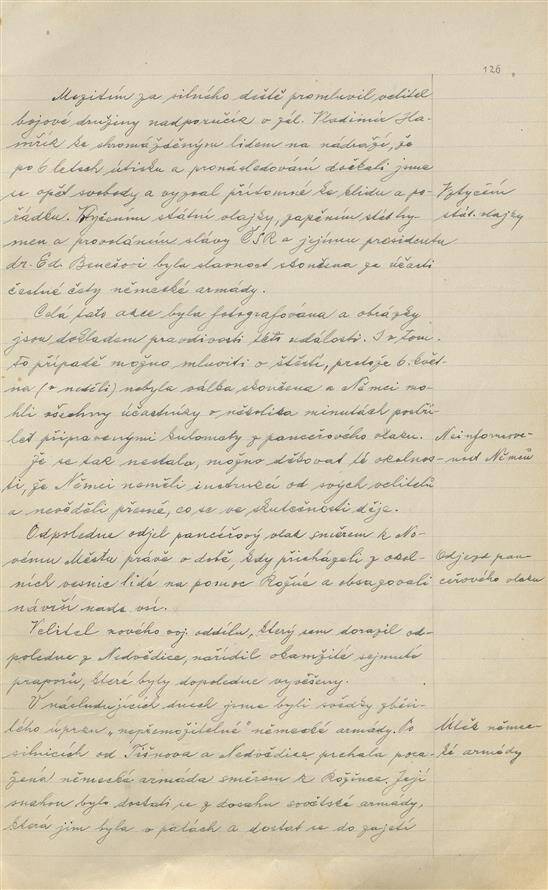 126
Mezitím za silného deště promluvil velitel
bojové družiny nadporučík v zál. Vladimír Ha-
mřík ke shromážděným lidem na nádraží, že
po 6 letech útisku a pronásledování dočkali jsme
se opět svobody a vyzval přítomné ke klidu a po-
řádku. Vztyčením státní vlajky, zapěním stát. hy-
men a provoláním slávy ČSR a jejímu presidentu
dr. Ed. Benešovi byla slavnost skončena za účasti
čestné čety německé armády.
Vztyčení
stát. vlajky
Celá tato akce byla fotografována a obrázky
jsou dokladem pravdivosti této události. I v tom-
to případě možno mluviti o štěstí, protože 6. květ-
na (v neděli) nebyla válka skončena a Němci mo-
hli všechny účastníky v několika minutách postří-
let připravenými kulomaty z pancéřového vlaku.
Že se tak nestalo, možno děkovat té okolnos-
ti, že Němci neměli instrukcí od svých velitelů
a nevěděli přesně, co se ve skutečnosti děje.
Neinformova-
nost Němců
Odpoledne odjel pancéřový vlak směrem k No-
vému Městu právě v době, kdy přicházeli z okol-
ních vesnic lidé na pomoc Rožné a obsazovali
návrší nade vsí.
Odjezd pan-
céřového vlaku
Velitel nového voj. oddílu, který sem dorazil od-
poledne z Nedvědice, nařídil okamžité sejmutí
praporů, které byly dopoledne vyvěšeny.
V následujících dnech jsme byli svědky zběsi-
lého úprku "nepřemožitelné" německé armády. Po
silnicích od Tišnova a Nedvědice prchala pora-
žená německá armáda směrem k Rožínce. Její
snahou bylo dostati se z dosahu sovětské armády,
která jim byla v patách a dostat se do zajetí
Útěk němec-
ké armády